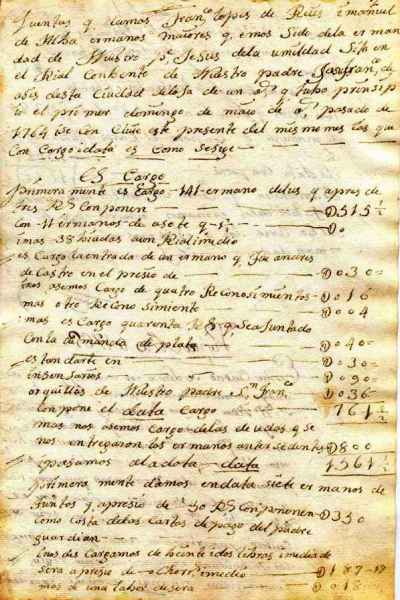 Quentas q damos Franco Lopes de Reies i manuel
de Alba ermanos maiores q emos Sido dela erman
dad de Nuestro Pe Jesus dela umildad Sita en
el Rial Conbente de Nuestro padre Sanfranco de
asis desta Ciudad de de un año q tubo prinsip
io el primer domingo de maio de año pasado de
1764 i se con Cluie este presente del mismo mes las que
Con Cargo idata es como se sige
Es Cargo
primera mente es Cargo 141 ermano delus q apres de
tres Rs Conponen D515½
con 11 ermanos de asote q D0
imas 38 biudas aun Rial imedio
es Cargo la entrada de un ermano q Jua
de Castro en el presio de D030
mas asemos Cargo de quatro ReConosimientos D016
mas otro ReCono Simiente D004
mas es Cargo quarenta Rs q Sea Juntado
Con la demanda de plata D040
estandarte en D030
insensarios D090
orquillas de Nuestro padre Sn Franco D036
Conpone el data Cargo 761½
mas nos asemos Cargo delas deudas q se
nos entregaron los ermanos antesedentes D800
ipasamos ala data data 1561½
primera mente damos en data siete ermanos de
Juntos q apresio de 50 Rs Conponen D350
como Costa delas Cartas de pago del padre
guardian
inos descargamos de beinte idos libras imedia de
sera apresio de ocho Rs imedio D187-17
mas de una laber desera D018